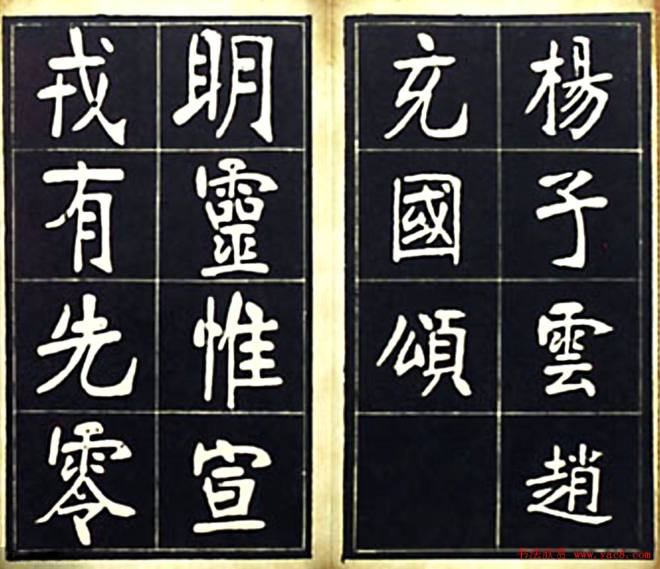 楊子雲趙
充國頌
明靈惟宣
戎有先零
书法欣赏 www.yac8.com